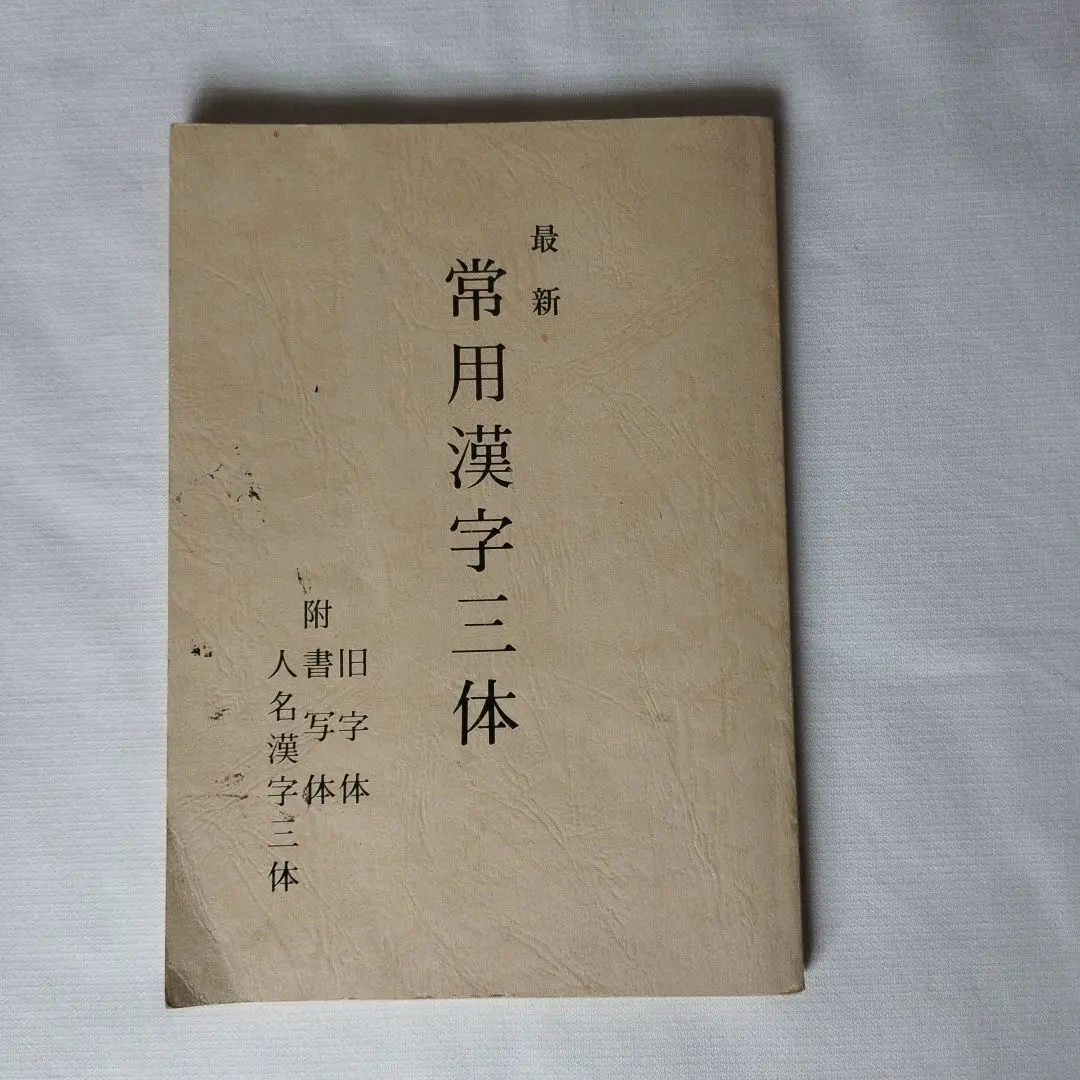 最新
常用漢字三体
附
旧字体
書写体
人名漢字三体